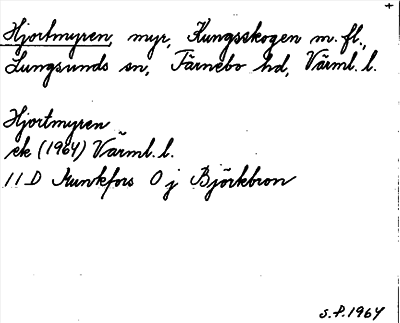 Hjortmyren, myr, Kungsskogen m. fl.,
Lungsunds sn, Färnebo hd, Värml. l.
Hjortmyren
ek (1964) Värml. l.
11 D Munkfors 0 j Björkbron
S.P. 1964